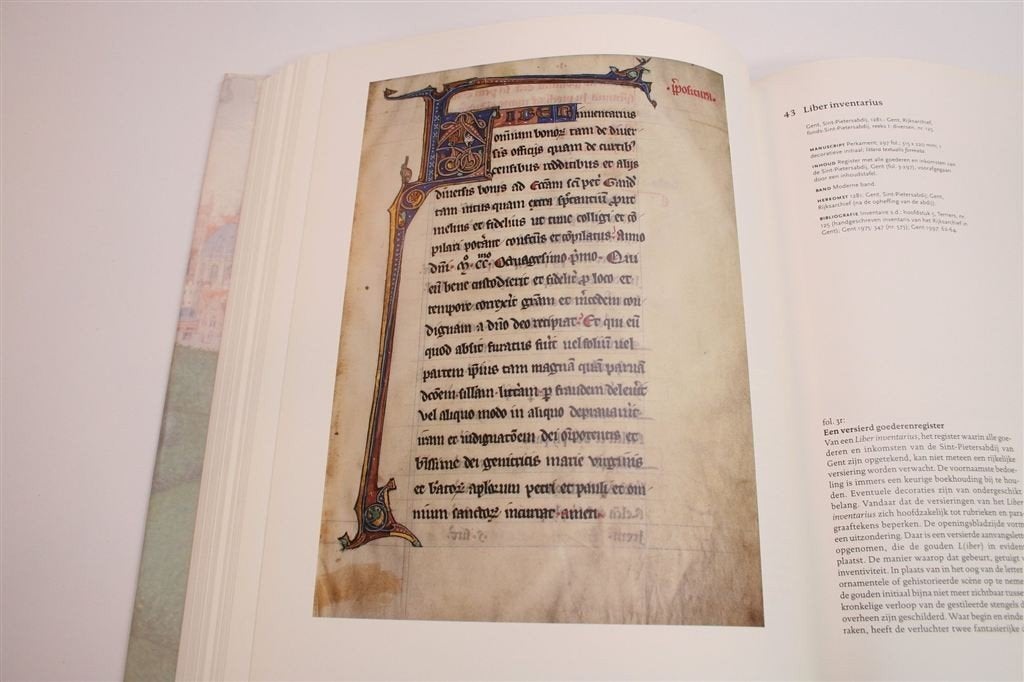 sposicura.
LIBER inventarius
omnium bonoꝝ tam de diuer
sis officijs quam de curtibꝰ
censibus redditibus et alijs
diuersis bonis ad Eccãm scĩ petri Gand̃
tam intus quam extra spectantiũ ꝓut
melius et fidelius ut tunc colligi et cõ
pilari poterãt confectus et cõpilatus. Anno
dñi. Mº. CCº. Octuagesimo primo. Qui
eũ bene custodierit et fidelit̃ ꝓ loco et
tempore correxit̃ grãm et mercedem con
dignam a dño deo recipiat. Et qui eũ
quod absit furatus fuit̃ uel foliũ uel
partem ip̃ius tam magnã quã paruã
dcõem sillam litt̃am ꝓ fraudem deleuit̃
uel aliquo modo in aliquo deprauauit̃
iram et indignatõem dei om̃ipotentis et
btissime dei genitricis marie virginis
et batoꝝ aplorum petri et pauli et om
nium sanctoꝝ incurrat. amen.
43 Liber inventarius
Gent, Sint-Pietersabdij, 1281. Gent, Rijksarchief,
fonds Sint-Pietersabdij, reeks I: diversen, nr. 125
MANUSCRIPT Perkament; 297 fol.; 315 x 220 mm; 1
decoratieve initiaal; littera textualis formata.
INHOUD Register met alle goederen en inkomsten van
de Sint-Pietersabdij, Gent (fol. 3-297), voorafgegaan
door een inhoudstafel.
BAND Moderne band.
HERKOMST 1281: Gent, Sint-Pietersabdij; Gent,
Rijksarchief (na de opheffing van de abdij).
BIBLIOGRAFIE Inventaire s.d.: hoofdstuk 5, Terriers, nr.
125 (handgeschreven inventaris van het Rijksarchief in
Gent); Gent 1975: 347 (nr. 575); Gent 1997: 62-64.
fol. 3r:
Een versierd goederenregister
Van een Liber inventarius, het register waarin alle goe-
deren en inkomsten van de Sint-Pietersabdij van
Gent zijn opgetekend, kan niet meteen een rijkelijke
versiering worden verwacht. De voornaamste bedoe-
ling is immers een keurige boekhouding bij te hou-
den. Eventuele decoraties zijn van ondergeschikt
belang. Vandaar dat de versieringen van het Liber
inventarius zich hoofdzakelijk tot rubrieken en para-
graaftekens beperken. De openingsbladzijde vormt
een uitzondering. Daar is een versierde aanvangsletter
opgenomen, die de gouden L(iber) in evidentie
plaatst. De manier waarop dat gebeurt, getuigt v
inventiviteit. In plaats van in het oog van de letter
ornamentele of gehistorieerde scène op te neme
de gouden initiaal bijna niet meer zichtbaar tusse
kronkelige verloop van de gestileerde stengels d
overheen zijn geschilderd. Waar begin en einde
raken, heeft de verluchter twee fantasierijke d